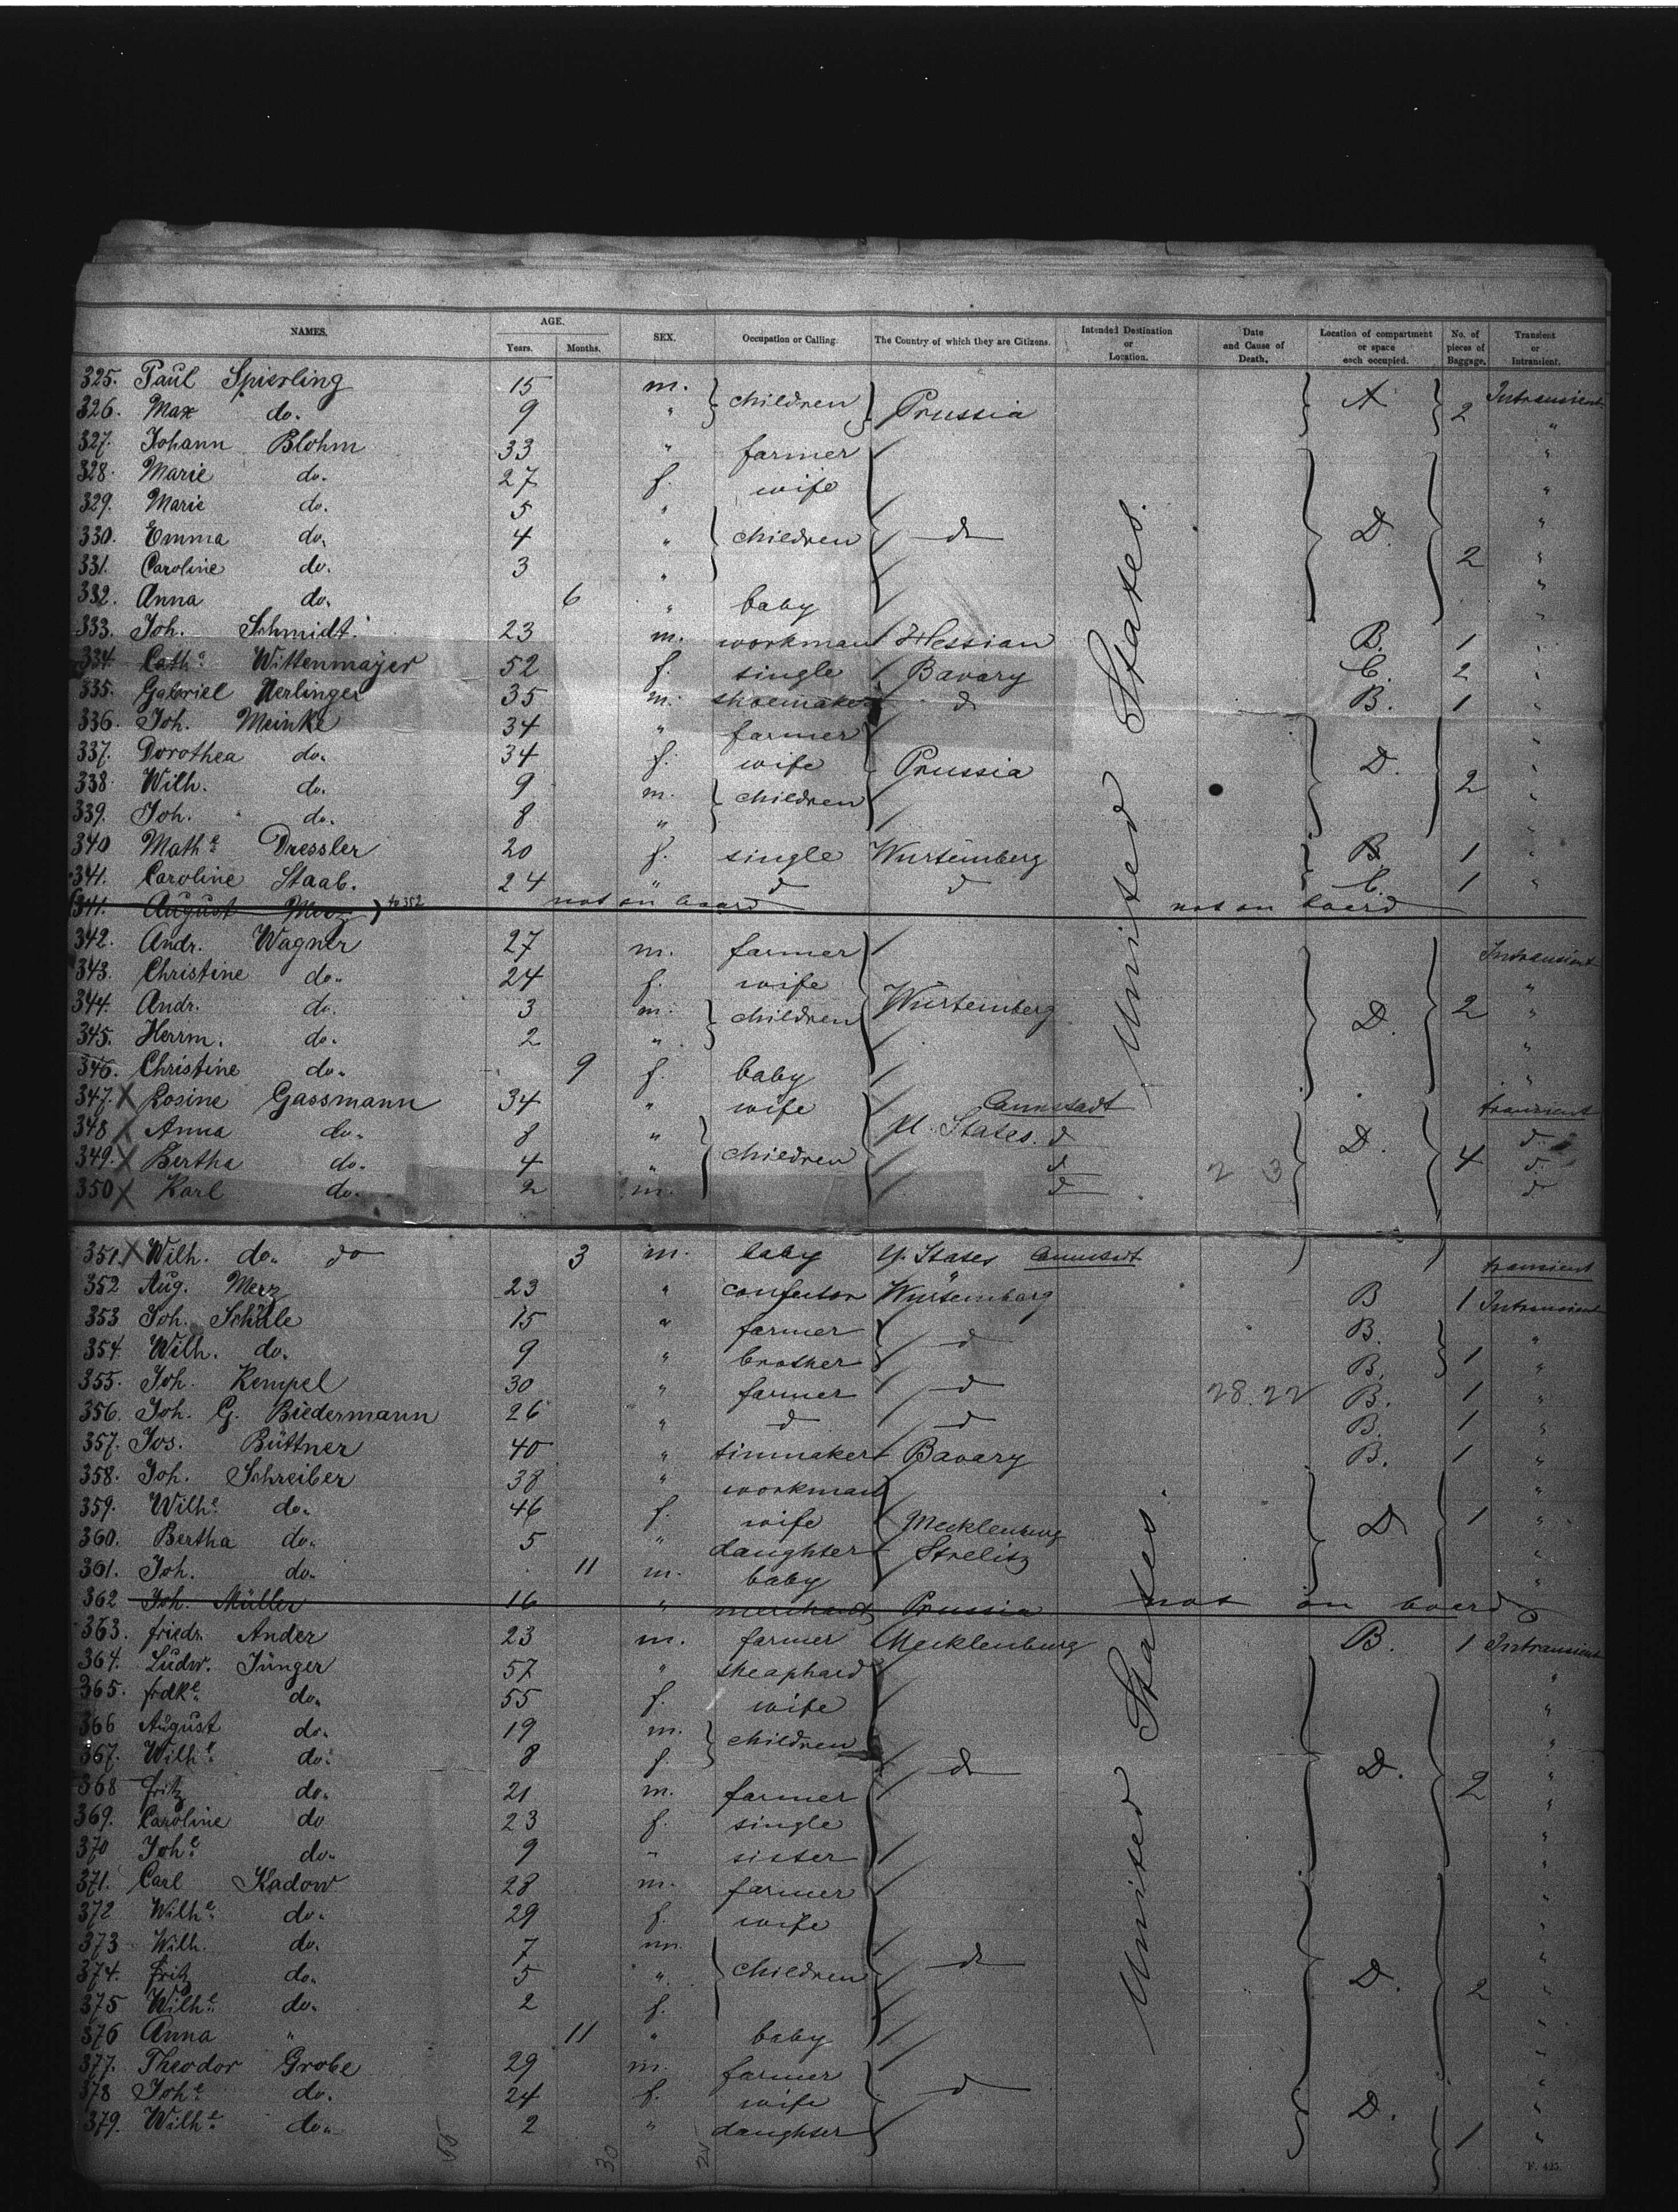 NAMES. AGE. Years. Months. SEX. Occupation or Calling. The Country of which they are Citizens. Intended Destination or Location. Date and Cause of Death. Location of compartment or space each occupied. No. of pieces of Baggage. Transient or Intransient.
325. Paul Spierling 15 m. children Prussia A 2 Intransient
326. Max do. 9 "  "
327. Johann Blohm 33 " farmer "
328. Marie do. 27 f. wife "
329. Marie do. 5 " children d D. 2 "
330. Emma do. 4 " "
331. Caroline do. 3 " "
332. Anna do. 6 " baby "
333. Joh. Schmidt. 23 m. workman Hessian B. 1 "
334. Cathe. Wittenmayer 52 f. single Bavary C. 2 "
335. Gabriel Nerlinger 35 m. shoemaker d B. 1 "
336. Joh. Meinke 34 " farmer Prussia D. 2 "
337. Dorothea do. 34 f. wife "
338. Wilh. do. 9 m. children "
339. Joh. do. 8 " "
340 Mathe. Dressler 20 f. single Wurtemberg B. 1 "
341. Caroline Staab. 24 " d d C. 1 "
(341. August Merz) to 352 not on board not on board
United States.
342. Andr. Wagner 27 m. farmer Würtemberg D. 2 Intransient
343. Christine do. 24 f. wife "
344. Andr. do. 3 m. children "
345. Herrm. do. 2 " "
346. Christine do. 9 f. baby "
347. X Rosine Gassmann 34 " wife U. States. Cannstadt D. 4 transient
348 X Anna do. 8 " children d d
349. X Bertha do. 4 " d 2 3 d
350 X Karl do. 2 m. d d
351. X Wilh. do. do 3 m. baby U. States Cannstadt transient
352 Aug. Merz 23 " confector Würtemberg B 1 Intransient
353 Joh. Schüle 15 " farmer d B. 1 "
354. Wilh. do. 9 " brother B. "
355. Joh. Kempel 30 " farmer d 28.22 B. 1 "
356. Joh. G. Biedermann 26 " d d B. 1 "
357. Jos. Büttner 40 " tinmaker Bavary B. 1 "
358. Joh. Schreiber 38 " workman Mecklenburg Strelitz D 1 "
359. Wilhe. do. 46 f. wife "
360. Bertha do. 5 " daughter "
361. Joh. do. 11 m. baby "
362 Joh. Müller 16 " merchant Prussia not on board
363. friedr. Ander 23 m. farmer Mecklenburg B. 1 Intransient
364. Ludw. Jünger 57 " sheaphard d D. 2 "
365. frdke. do. 55 f. wife "
366 August do. 19 m. children "
367. Wilhe. do. 8 f. "
368 fritz do. 21 m. farmer "
369. Caroline do 23 f. single "
370 Johe. do. 9 " sister "
371. Carl Kadow 28 m. farmer d D. 2 "
372 Wilhe. do. 29 f. wife "
373 Wilh. do. 7 m. children "
374. fritz do. 5 " "
375 Wilhe. do. 2 f. "
376 Anna " 11 " baby "
377. Theodor Grobe 29 m. farmer d D. 1 "
378 Johe. do. 24 f. wife "
379. Wilhe. do. 2 " daughter "
United States.
55 30 25
F. 425.